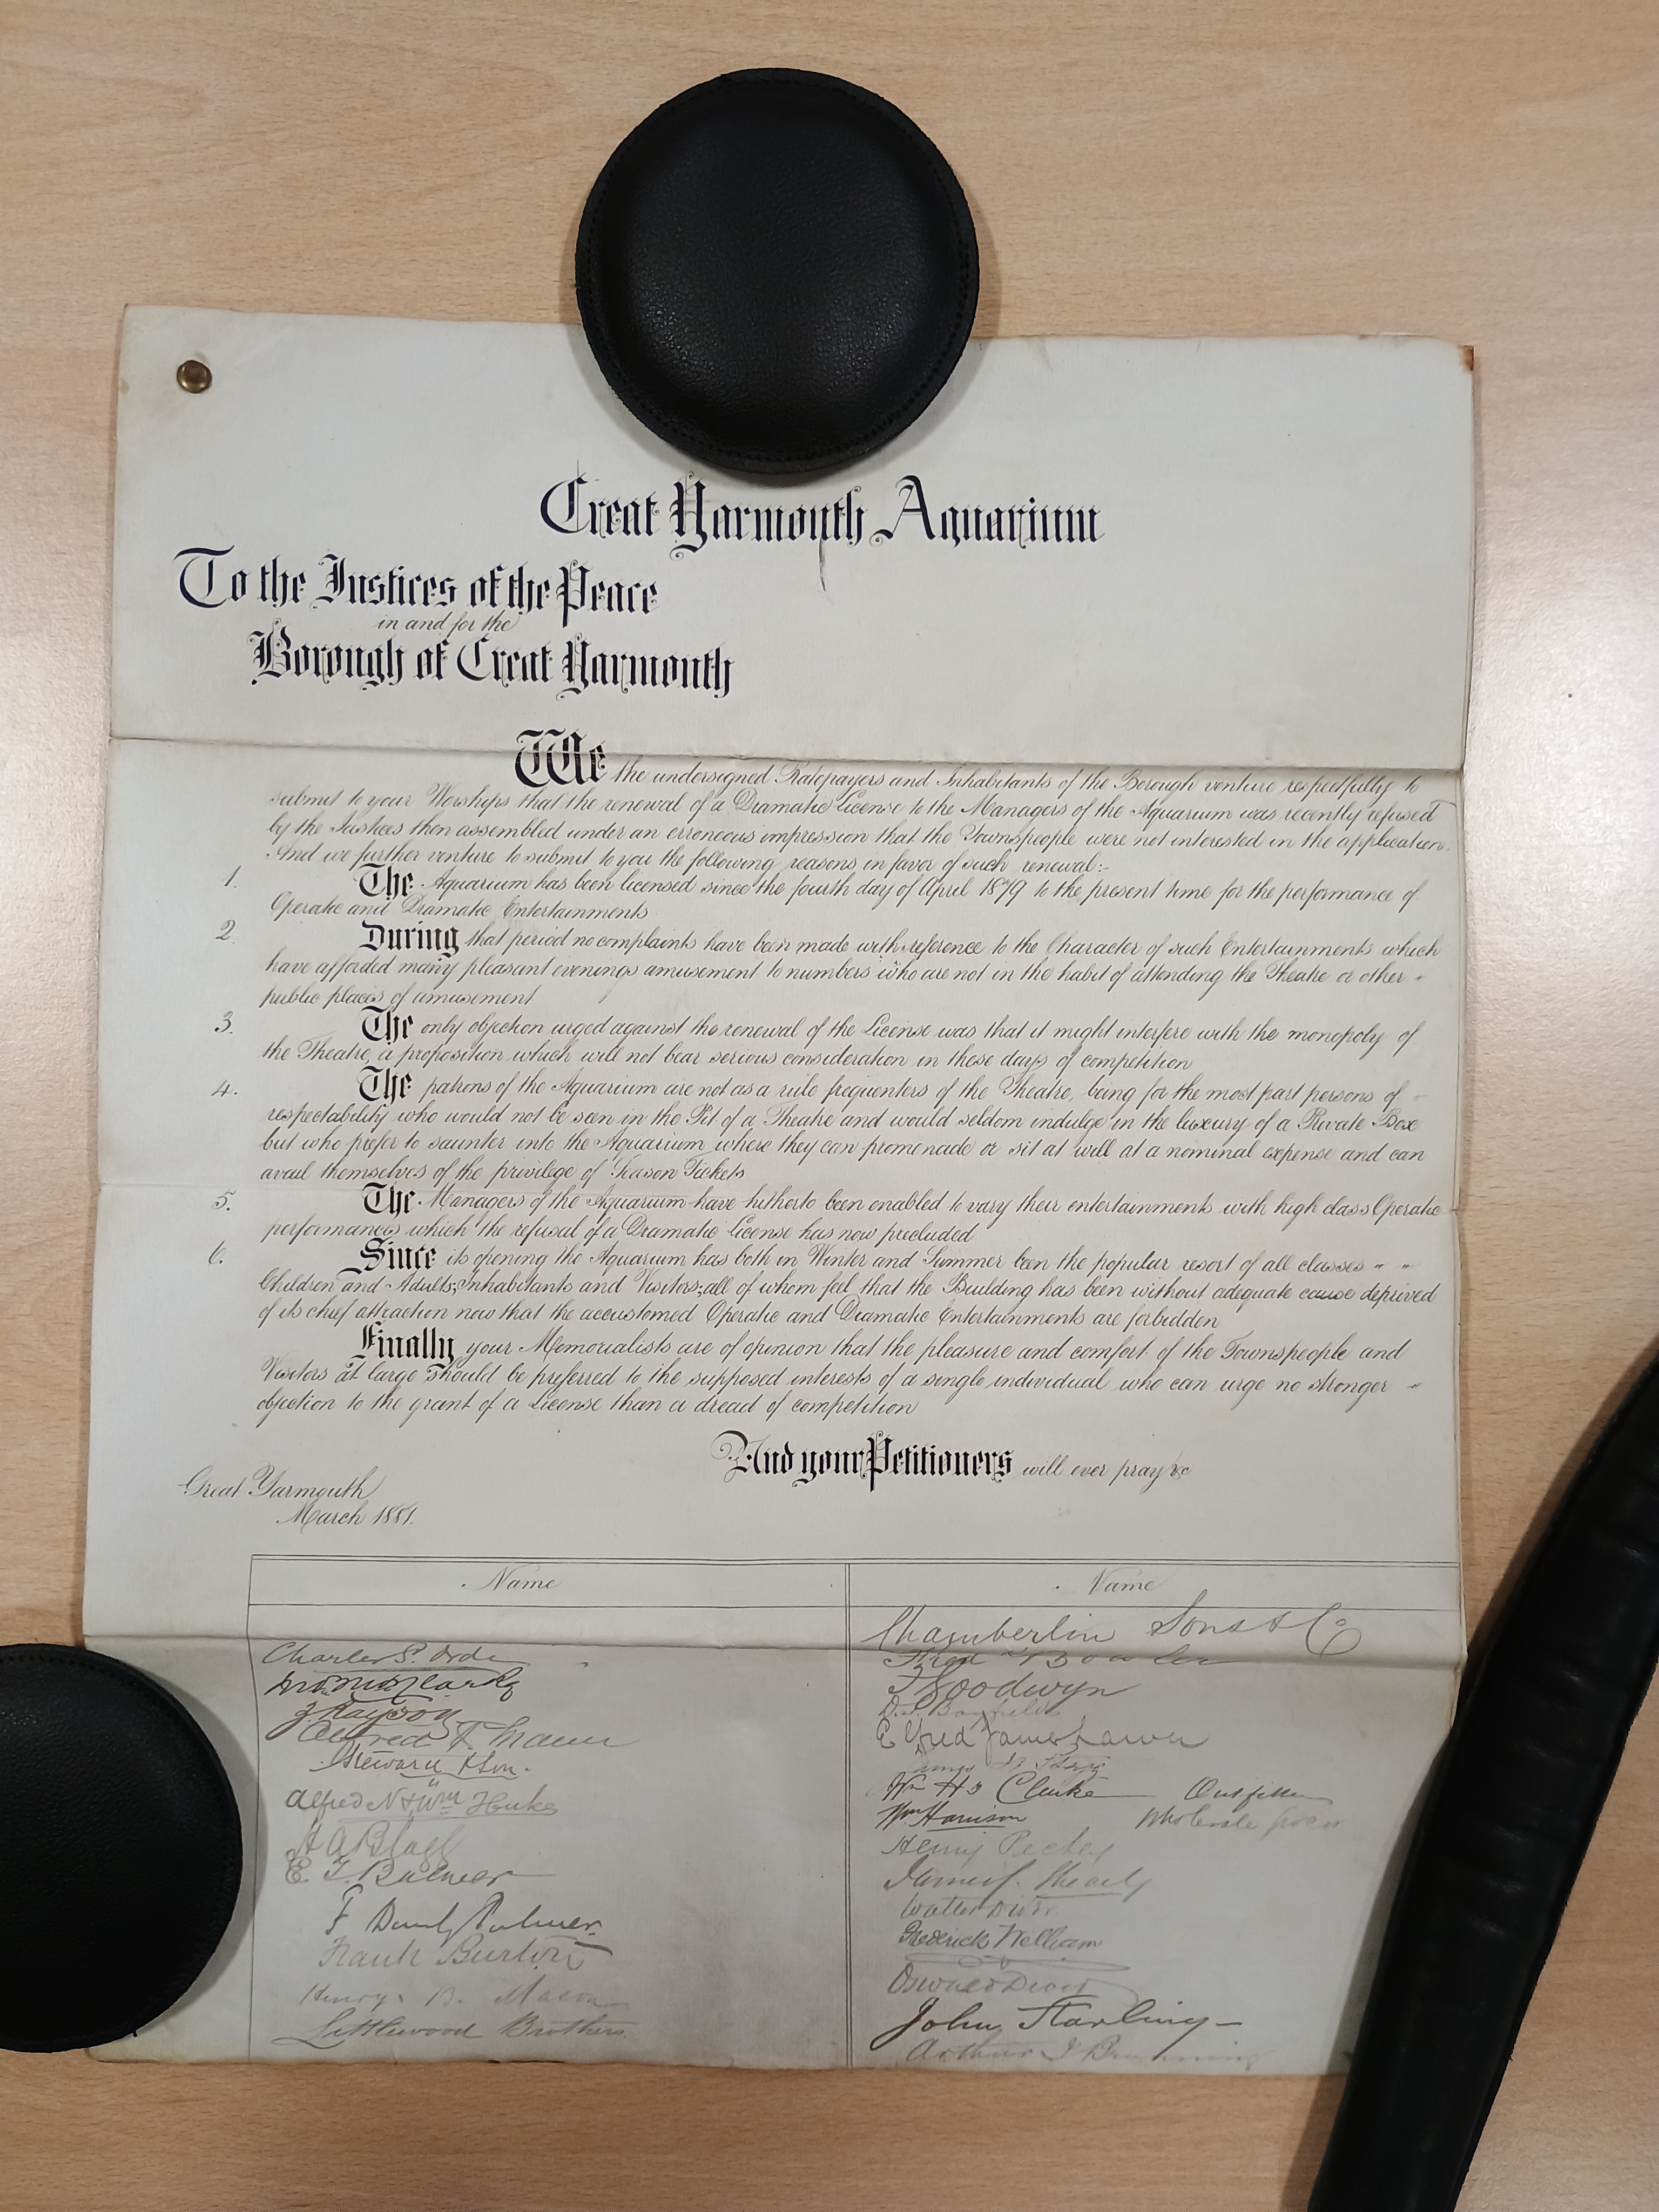 Great Yarmouth Aquarium
To the Justices of the Peace
in and for the
Borough of Great Yarmouth
We the undersigned Ratepayers and Inhabitants of the Borough venture respectfully to
submit to your Worships that the renewal of a Dramatic License to the Managers of the Aquarium was recently refused
by the Justices then assembled under an erroneous impression that the Townspeople were not interested in the application.
And we further venture to submit to you the following reasons in favor of such renewal:-
1. The Aquarium has been licensed since the fourth day of April 1879 to the present time for the performance of
Operatic and Dramatic Entertainments
2. During that period no complaints have been made with reference to the Character of such Entertainments which
have afforded many pleasant evenings amusement to numbers who are not in the habit of attending the Theatre or other
public places of amusement
3. The only objection urged against the renewal of the License was that it might interfere with the monopoly of
the Theatre, a proposition which will not bear serious consideration in these days of competition
4. The patrons of the Aquarium are not as a rule frequenters of the Theatre, being for the most part persons of
respectability who would not be seen in the Pit of a Theatre and would seldom indulge in the luxury of a Private Box
but who prefer to saunter into the Aquarium where they can promenade or sit at will at a nominal expense and can
avail themselves of the privilege of Season Tickets
5. The Managers of the Aquarium have hitherto been enabled to vary their entertainments with high class Operatic
performances which the refusal of a Dramatic License has now precluded
6. Since its opening the Aquarium has both in Winter and Summer been the popular resort of all classes " "
Children and Adults; Inhabitants and Visitors; all of whom feel that the Building has been without adequate cause deprived
of its chief attraction now that the accustomed Operatic and Dramatic Entertainments are forbidden
Finally your Memorialists are of opinion that the pleasure and comfort of the Townspeople and
Visitors at large should be preferred to the supposed interests of a single individual who can urge no stronger "
objection to the grant of a License than a dread of competition
And your Petitioners will ever pray &c
Great Yarmouth
March 1881.
Name
Charles S. Orde
Alfred
Steward & Son.
Alfred N & Wm
E. T. Palmer
F Palmer
Frank Burton
Henry B. Mason
Littlewood Brothers
Name
Chamberlin Sons & Co
Goodwyn
James
Wm Hy Clarke Outfitter
Wm Harrison Wholesale Grocer
Henry
James
Walter
Frederick William
John Starling
Arthur